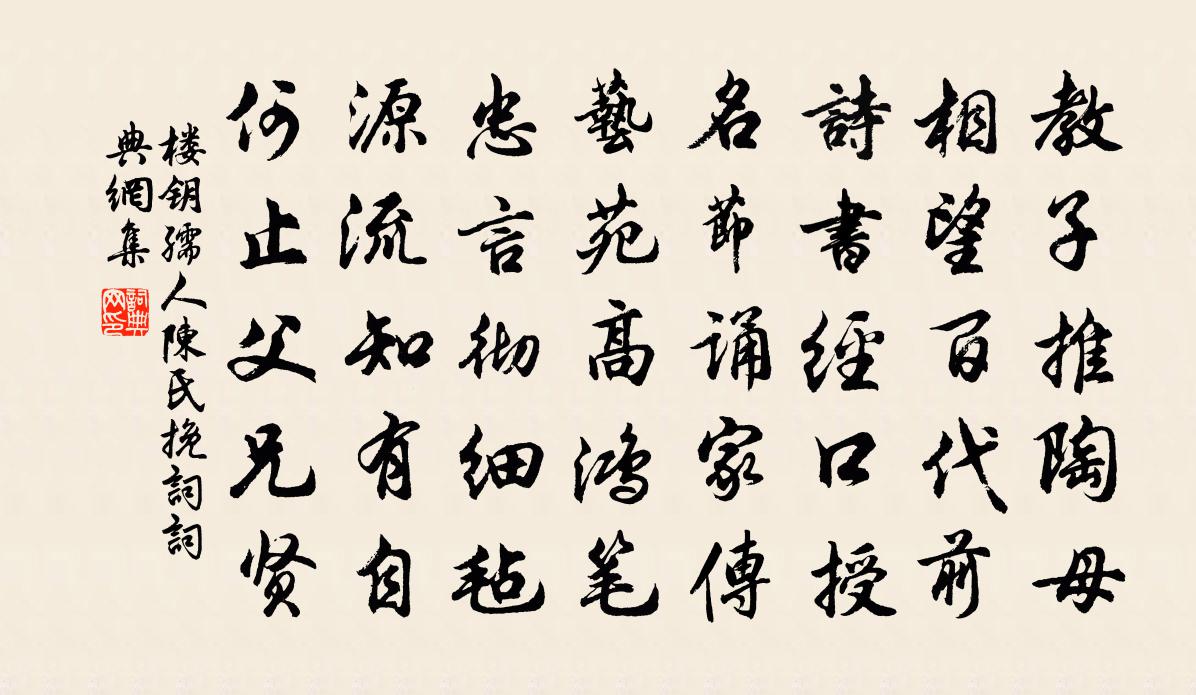 教子推陶母
相望百代前
詩書經口授
名節誦家傳
藝苑高鴻笔
忠言彻细毡
源流知有自
何止父兄贤
楼钥孺人陳氏挽詞詞
典網集
詞典
网印